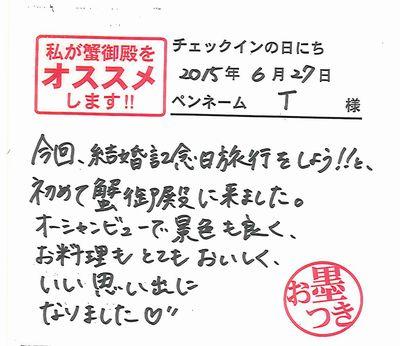 私が蟹御殿を
オススメ
します!!
チェックインの日にち
2015年 6月 27日
ペンネーム T 様
今回、結婚記念日旅行をしよう!!と、
初めて蟹御殿に来ました。
オーシャンビューで景色も良く、
お料理もとてもおいしく、
いい思い出に
なりました♡"
お墨つき